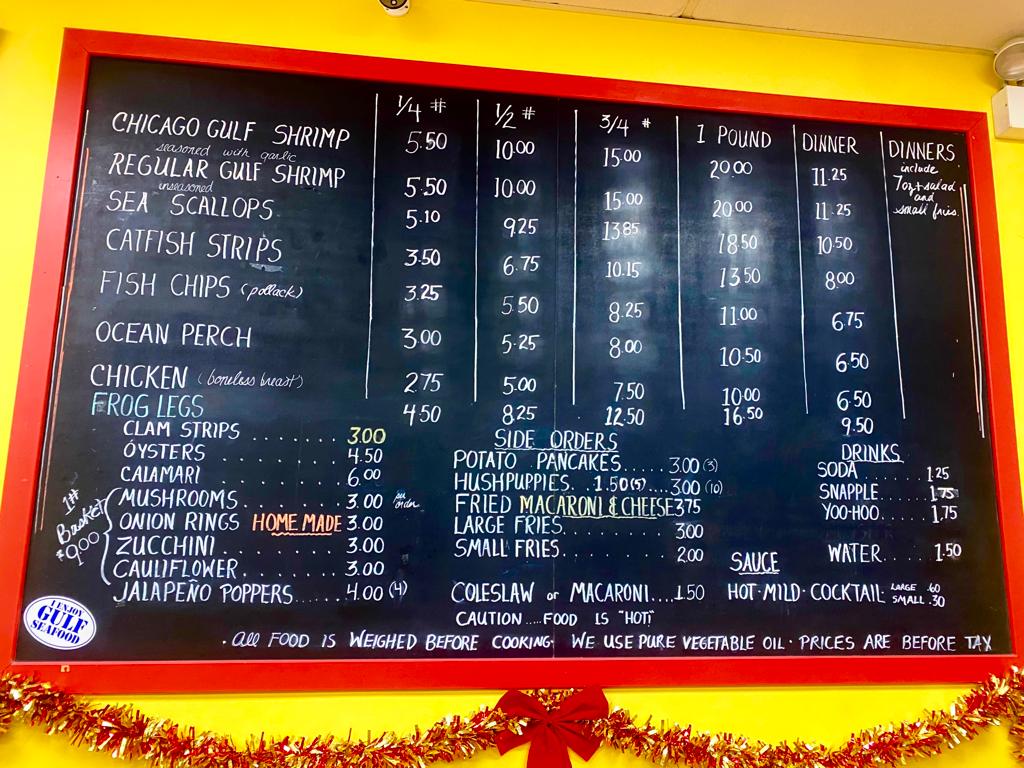 1/4 # 1/2 # 3/4 # 1 POUND DINNER DINNERS
include
7oz+salad
and
small fries.
CHICAGO GULF SHRIMP 5.50 10.00 15.00 20.00 11.25
seasoned with garlic
REGULAR GULF SHRIMP 5.50 10.00 15.00 20.00 11.25
unseasoned
SEA SCALLOPS 5.10 9.25 13.85 18.50 10.50
CATFISH STRIPS 3.50 6.75 10.15 13.50 8.00
FISH CHIPS (pollack) 3.25 5.50 8.25 11.00 6.75
OCEAN PERCH 3.00 5.25 8.00 10.50 6.50
CHICKEN (boneless breast) 2.75 5.00 7.50 10.00 6.50
FROG LEGS 4.50 8.25 12.50 16.50 9.50
CLAM STRIPS ........ 3.00
OYSTERS ........ 4.50
CALAMARI ........ 6.00
1# Basket $9.00
MUSHROOMS ...... 3.00 per order
ONION RINGS HOME MADE 3.00
ZUCCHINI ........ 3.00
CAULIFLOWER ...... 3.00
JALAPEÑO POPPERS .... 4.00 (4)
SIDE ORDERS
POTATO PANCAKES..... 3.00 (3)
HUSHPUPPIES.. 1.50(5)....3.00 (10)
FRIED MACARONI & CHEESE 3.75
LARGE FRIES......... 3.00
SMALL FRIES......... 2.00
COLESLAW or MACARONI....1.50
CAUTION.....FOOD IS "HOT"
DRINKS
SODA........1.25
SNAPPLE.....1.75
YOO-HOO.....1.75
WATER.....1.50
SAUCE
HOT·MILD·COCKTAIL LARGE .60
SMALL .30
I ENJOY
GULF
SEAFOOD
· All FOOD IS WEIGHED BEFORE COOKING· WE USE PURE VEGETABLE OIL· PRICES ARE BEFORE TAX